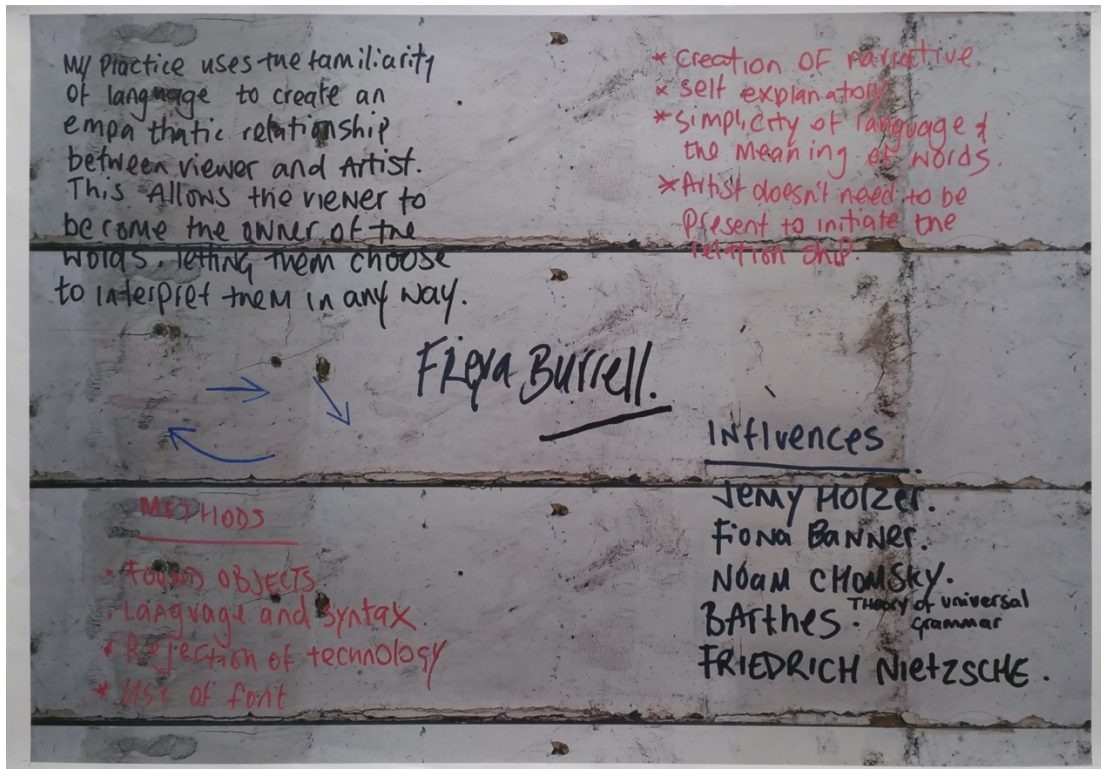 My Practice uses the familiarity
of language to create an
empathatic relationship
between viewer and Artist.
This Allows the viewer to
become the owner of the
words, letting them choose
to interpret them in any way.
* Creation OF narrative.
* self explanatory
* simplicity of language &
the meaning of words.
* Artist doesn't need to be
present to initiate the
relation ship.
Freya Burrell.
INflvences
Jenny Holzer.
Fiona BANNer.
NOam CHOMSky.
BArthes. THeory of universal
grammar
FRIEDRICH NIETZSCHE.
METHODS
• FOUND OBJECTS.
• Language and syntax.
• Rejection of technology
* Use of font